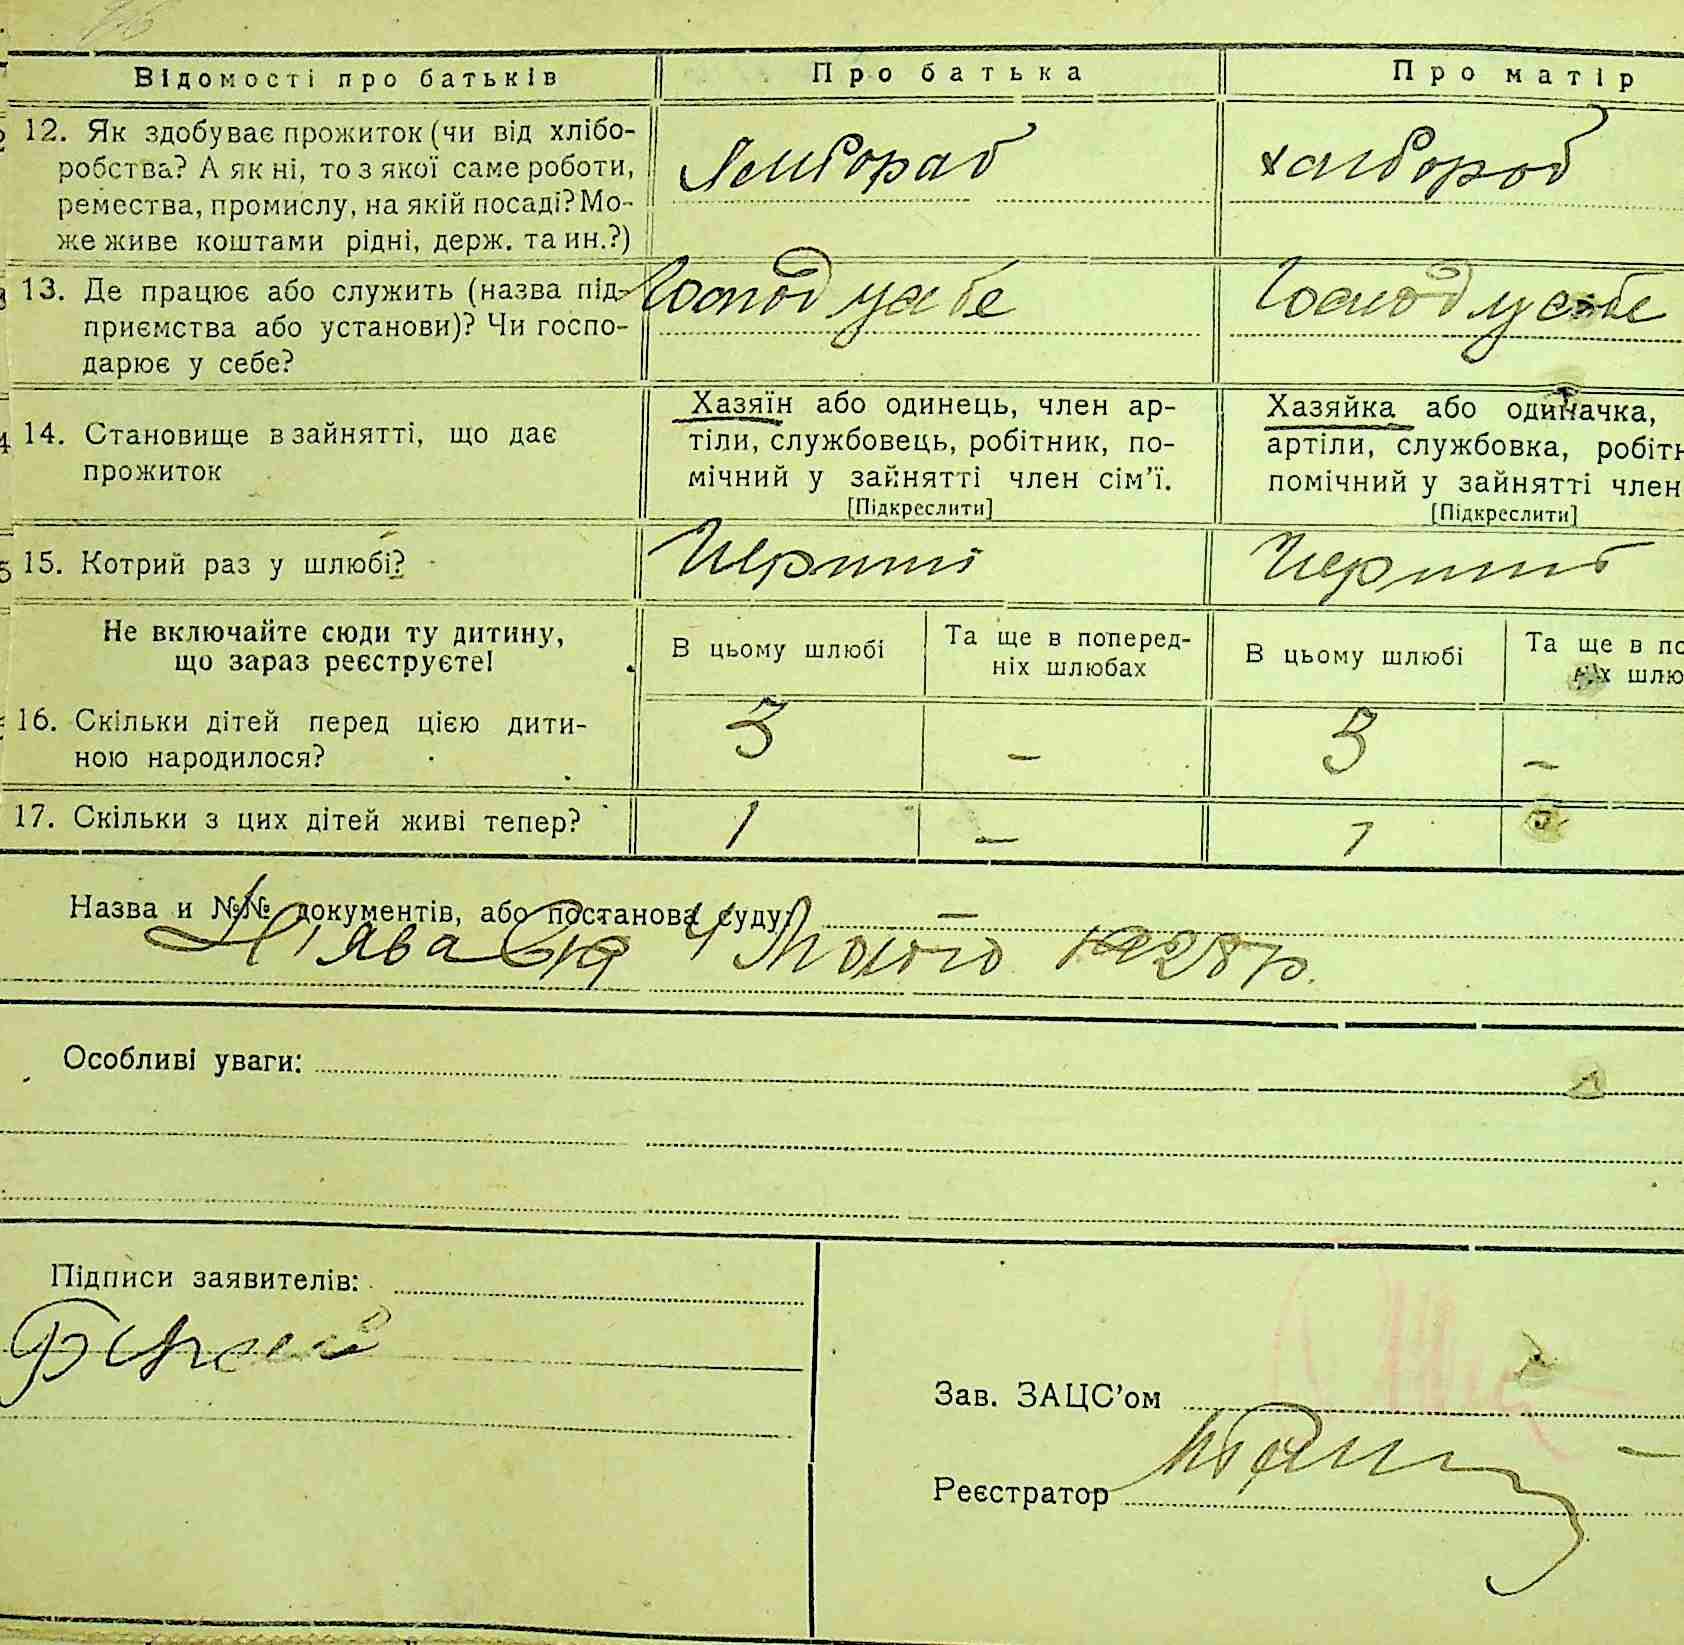 Відомості про батьків
Про батька
Про матір
12. Як здобуває прожиток (чи від хлібо-
робства? А як ні, то з якої саме роботи,
ремества, промислу, на якій посаді? Мо-
же живе коштами рідні, держ. та ин.?)
хлібороб
13. Де працює або служить (назва під-
приємства або установи)? Чи госпо-
дарює у себе?
Господ у себе
Господ у себе
14. Становище в зайнятті, що дає
прожиток
Хазяїн або одинець, член ар-
тіли, службовець, робітник, по-
мічний у зайнятті член сім'ї.
[Підкреслити]
Хазяйка або одиначка,
артіли, службовка, робітн
помічний у зайнятті член
[Підкреслити]
15. Котрий раз у шлюбі?
Перший
Не включайте сюди ту дитину,
що зараз реєструєте!
В цьому шлюбі
Та ще в поперед-
ніх шлюбах
В цьому шлюбі
Та ще в по
ніх шлю
16. Скільки дітей перед цією дити-
ною народилося?
3
–
3
–
17. Скільки з цих дітей живі тепер?
1
–
1
Назва и №№ документів, або постанова суду:
–
1928 р.
Особливі уваги:
Підписи заявителів:
Зав. ЗАЦС'ом
Реєстратор